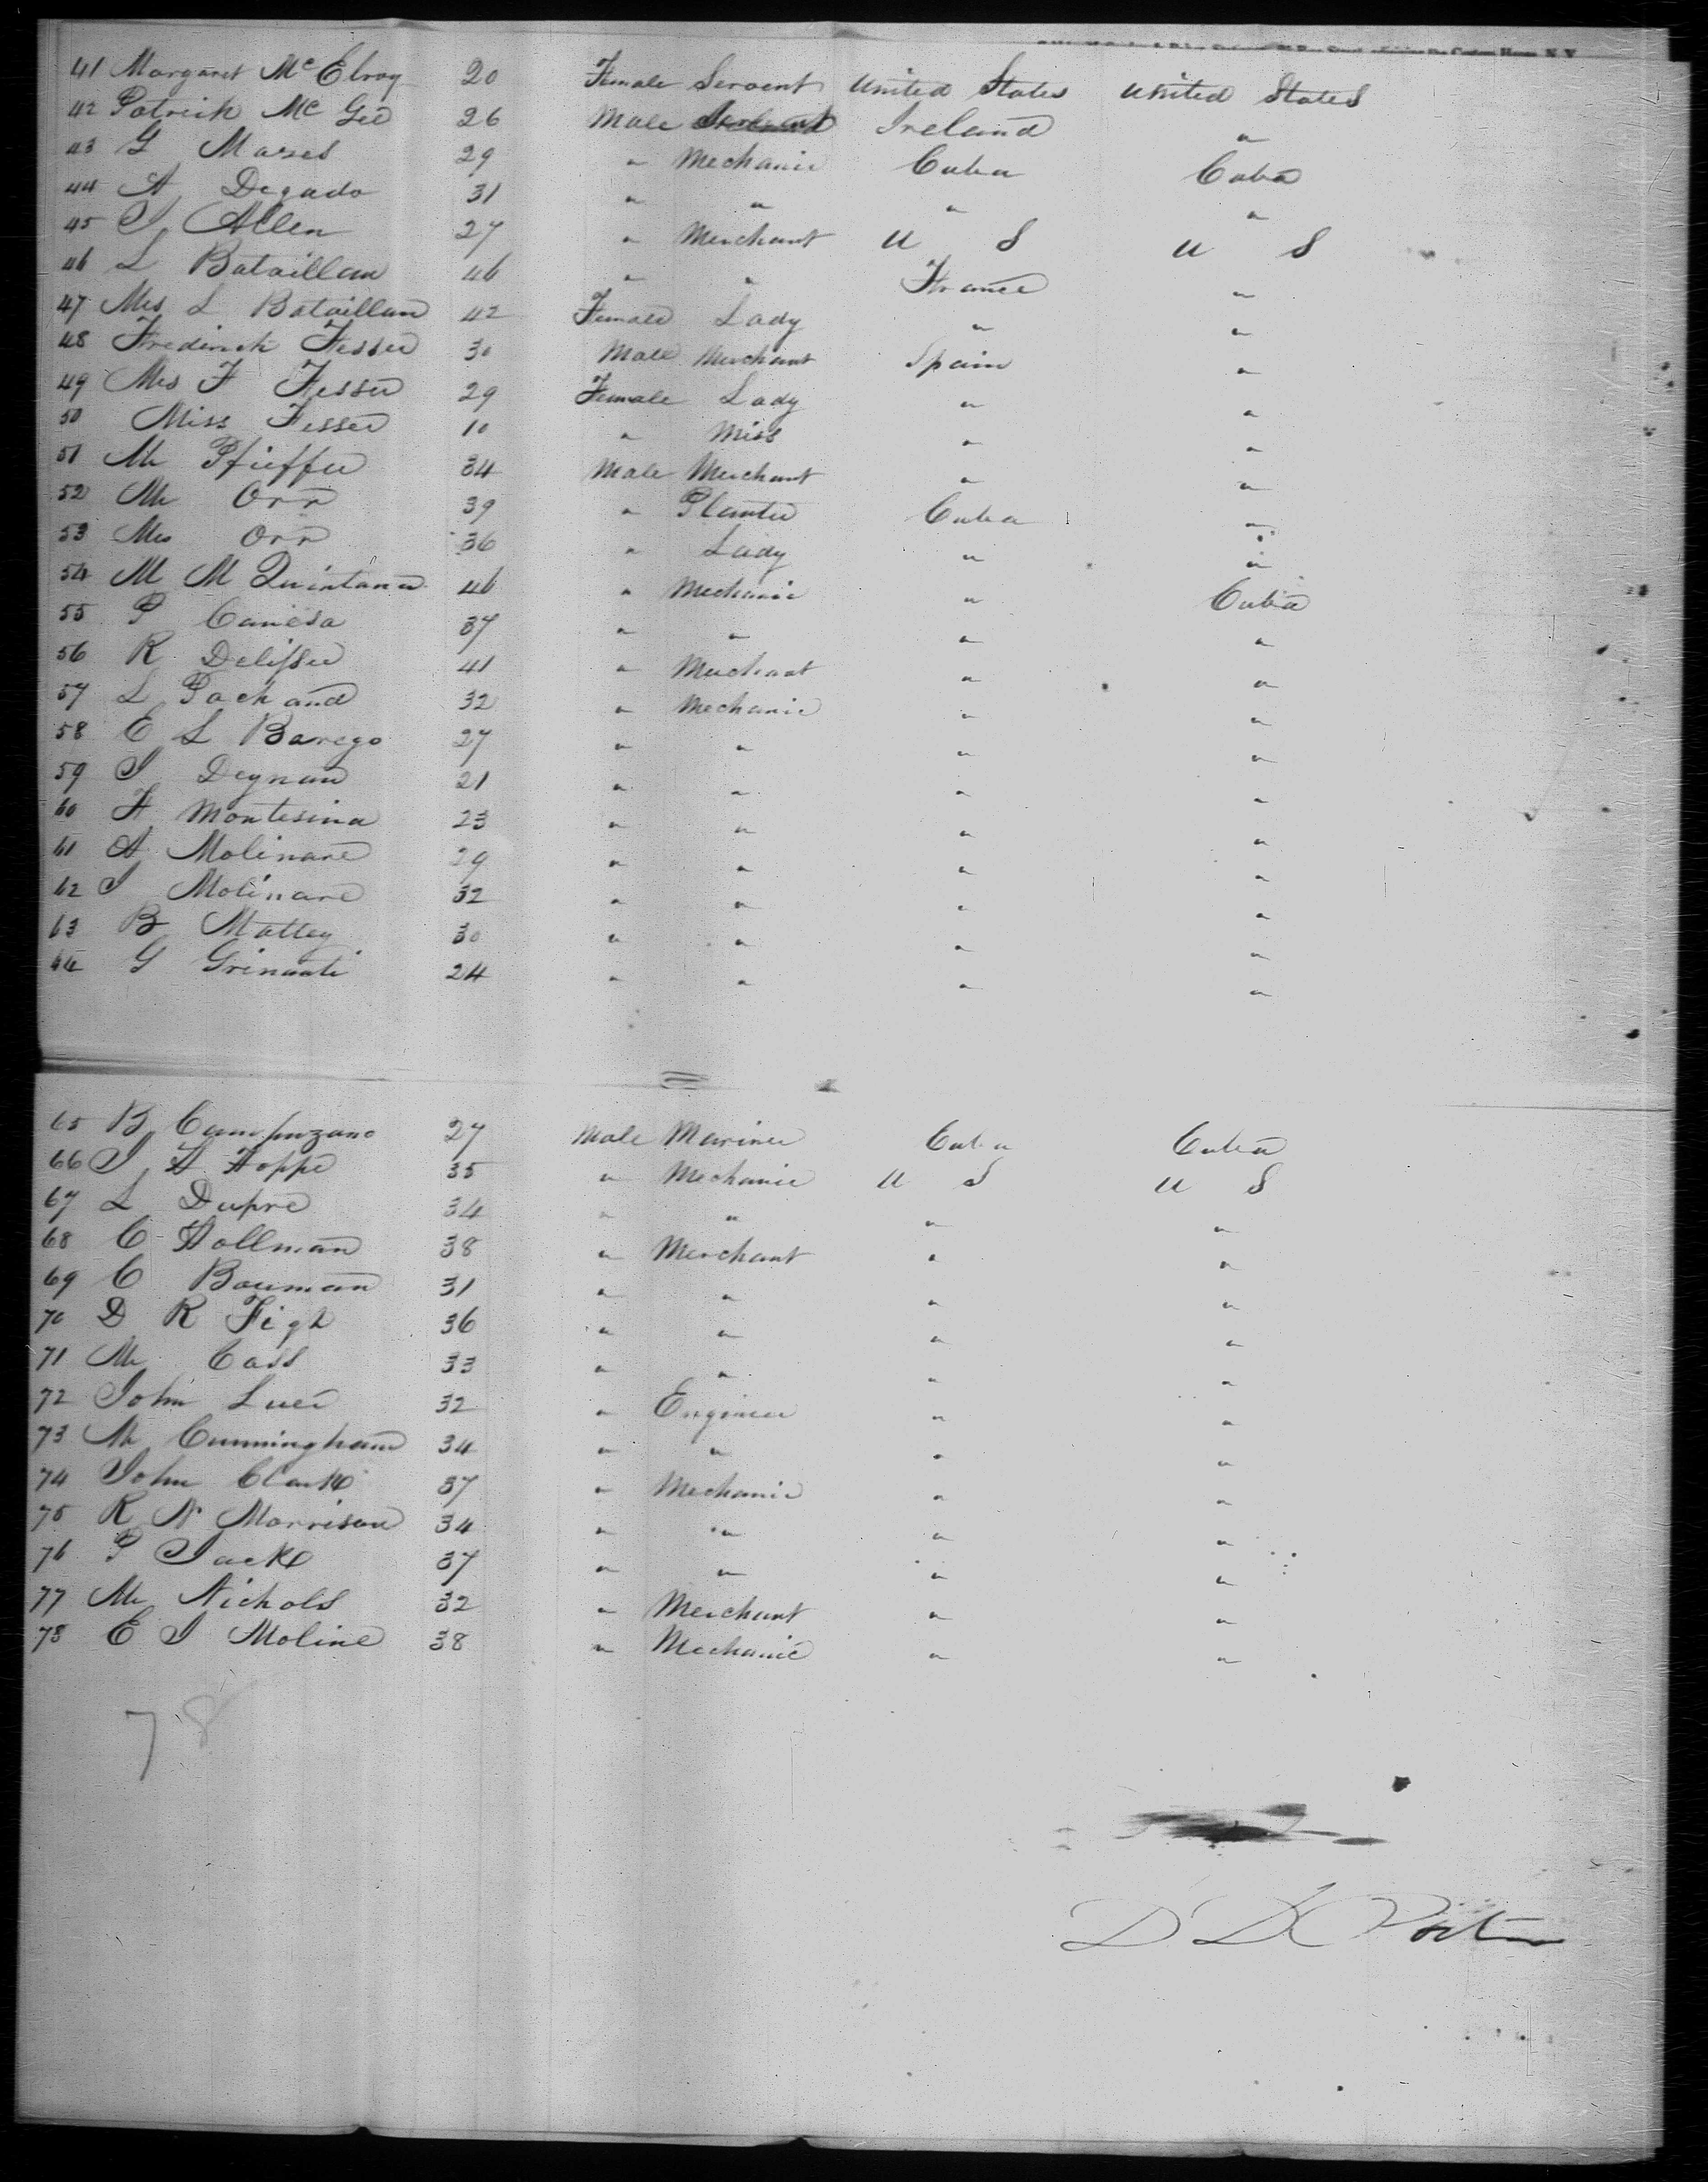 41 Margaret McElroy 20 Female Servent United States United States
42 Patrick McGee 26 Male Ireland "
43 G Mases 29 " Mechanic Cuba Cuba
44 A Degado 31 " " " "
45 J Allen 27 " Merchant U S U S
46 L Bataillan 46 " " France "
47 Mrs L Bataillan 42 Female Lady " "
48 Frederick Fesser 30 Male Merchant Spain "
49 Mrs F Fesser 29 Female Lady " "
50 Miss Fesser 10 " Miss " "
51 Mr Pfieffer 34 Male Merchant " "
52 Mr Orr 39 " Planter Cuba "
53 Mrs Orr 36 " Lady " "
54 M M Quintana 46 " Mechanic " Cuba
55 P Canesa 37 " " " "
56 R Delisser 41 " Merchant " "
57 L Pochand 32 " Mechanic " "
58 E L Barego 27 " " " "
59 J Deynan 21 " " " "
60 F Montesina 23 " " " "
61 A Molinare 29 " " " "
62 J Molinare 32 " " " "
63 B Matley 30 " " " "
64 G 24 " " " "
65 B Campuzano 27 Male Mariner Cuba Cuba
66 J H Hoppe 35 " Mechanic U S U S
67 L Dupre 34 " " " "
68 C Hollman 38 " Merchant " "
69 C Bouman 31 " " " "
70 D R Figh 36 " " " "
71 Mr Cass 33 " " " "
72 John Luer 32 " Engineer " "
73 Mr Cunningham 34 " " " "
74 John Clark 37 " Mechanic " "
75 R N Morrison 34 " " " "
76 P Jack 37 " " " "
77 Mr Nichols 32 " Merchant " "
78 E J Moline 38 " Mechanic " "
78
D D Porter